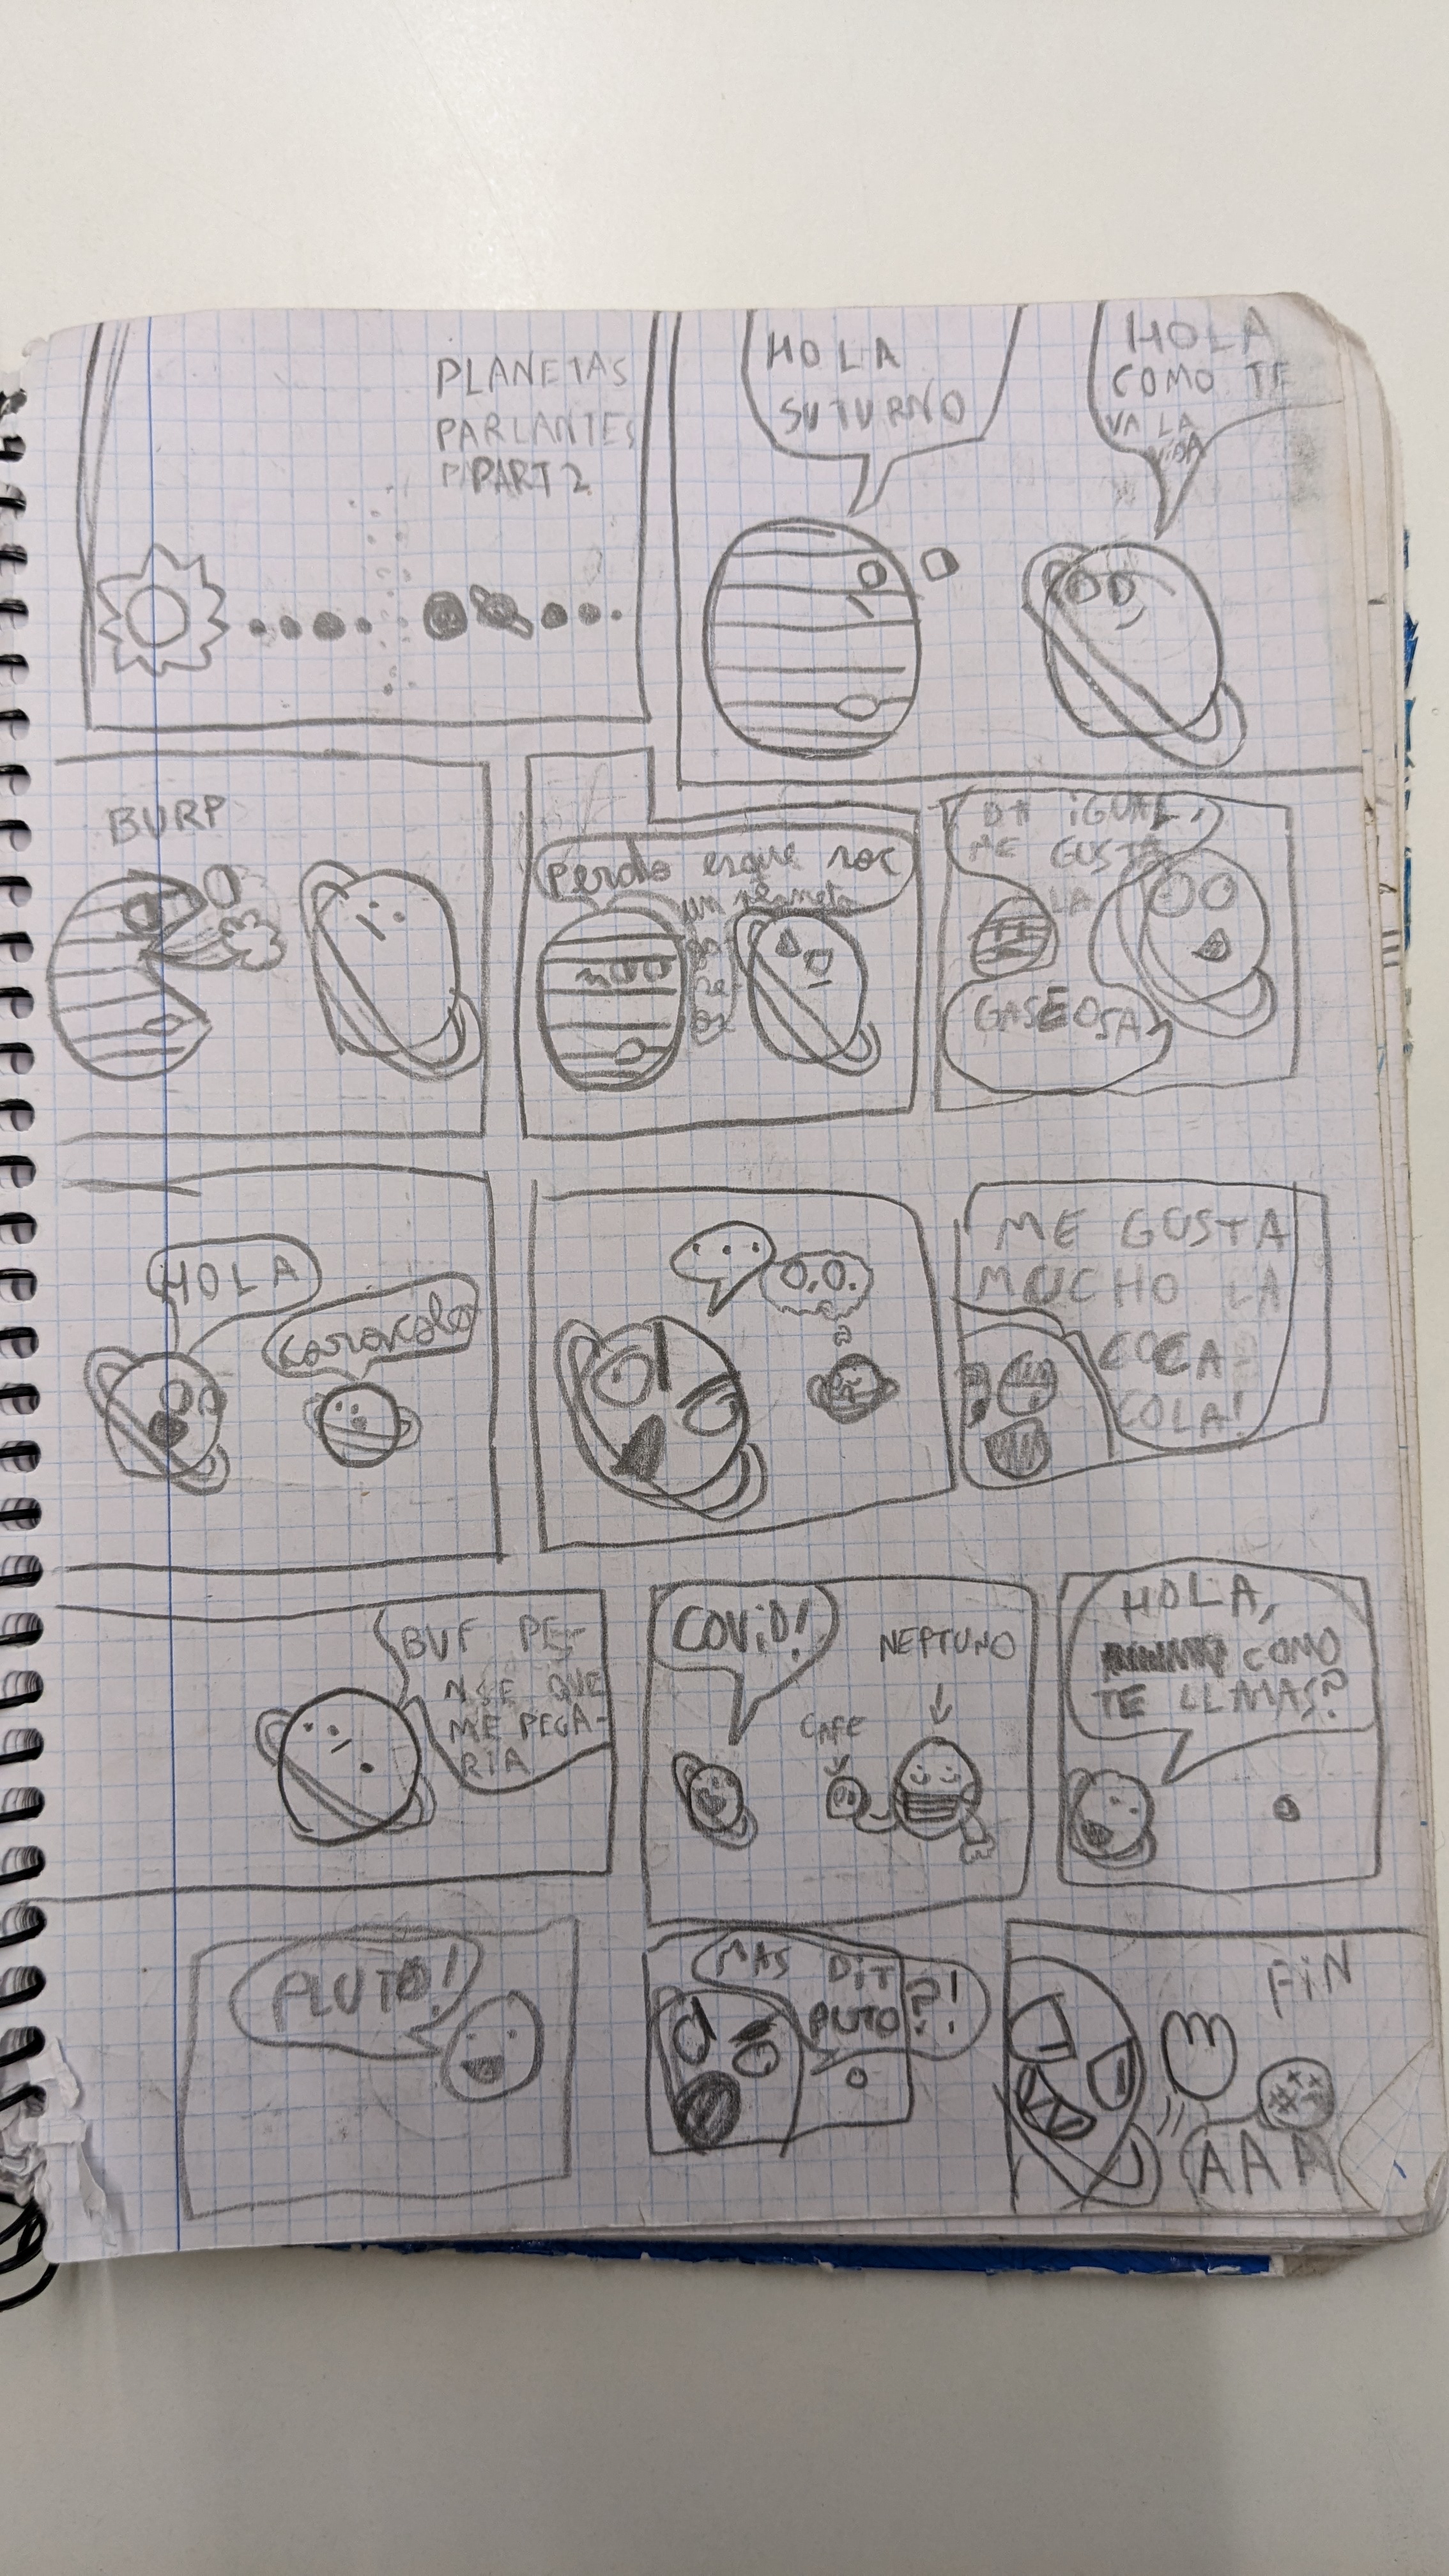 PLANETAS
PARLANTES
PART 2
HOLA
SUTURNO
HOLA
COMO TE
VA LA
VIDA
BURP
Perdio esque soc
un planeta
DA IGUAL,
ME GUSTA
LA
GASEOSA
HOLA
caracolo
...
O,O.
ME GUSTA
MUCHO LA
COCA-
COLA!
BUF PE-
NSE QUE
ME PEGA-
RIA
COVID!
NEPTUNO
CAFE
HOLA,
COMO
TE LLMAS?
PLUTO!
MAS DIT
PUTO?!
FIN
AAA